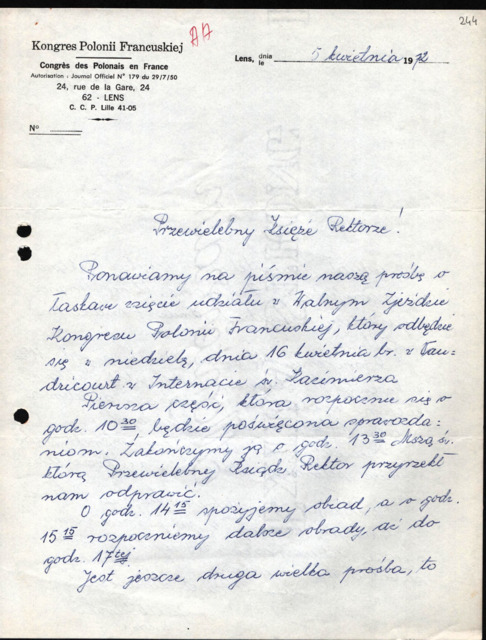 244
AA
Kongres Polonii Francuskiej
Congrès des Polonais en France
Autorisation : Journal Officiel N° 179 du 29/7/50
24, rue de la Gare, 24
62 - LENS
C. C. P. Lille 41-05
N°
Lens, dnia le 5 kwietnia 1972
Przewielebny Księże Rektorze!
Ponawiamy na piśmie naszą prośbę o
łaskawe wzięcie udziału w Walnym Zjeździe
Kongresu Polonii Francuskiej, który odbędzie
się w niedzielę, dnia 16 kwietnia br. w Vau-
dricourt w Internacie św. Kazimierza
Pierwsza część, która rozpocznie się o
godz. 10 30 będzie poświęcona sprawozda-
niom. Zakończymy ją o godz. 13 30 Mszą św.
którą Przewielebny Ksiądz Rektor przyrzekł
nam odprawić.
O godz. 14 15 spożyjemy obiad, a o godz.
15 15 rozpoczniemy dalsze obrady, aż do
godz. 17tej
Jest jeszcze druga wielka prośba, to